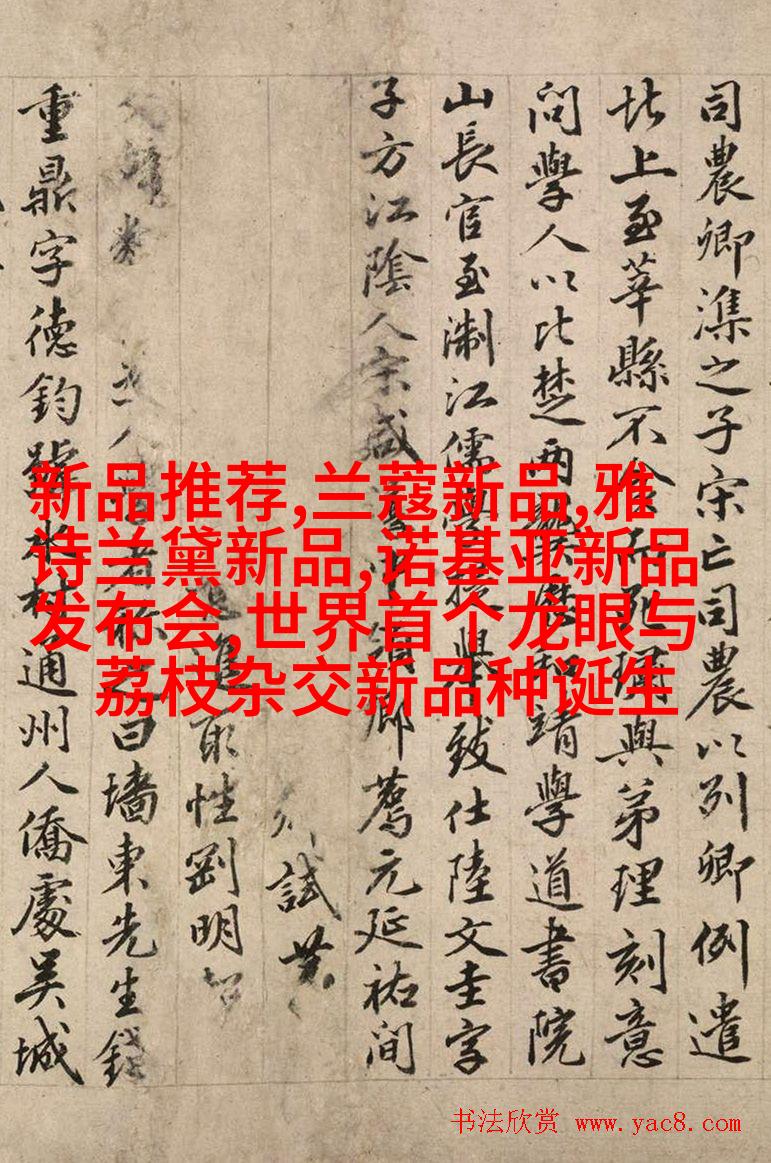 司農卿潗之子宋亡司農以列卿例遣
北上至莘縣不食而死璛與弟理刻意
問學人以比楚兩龔歷和靖學道書院
山長官至淛江儒學提舉致仕陸文圭字
子方江陰人宋咸淳中領鄉薦元延祐間
試
進取性剛明
人曰墻東先生錢
重鼎字德鈞號水村通州人僑處吳城
新品推荐,兰蔻新品,雅
诗兰黛新品,诺基亚新品
发布会,世界首个龙眼与
荔枝杂交新品种诞生
书法欣赏 www.yac8.com